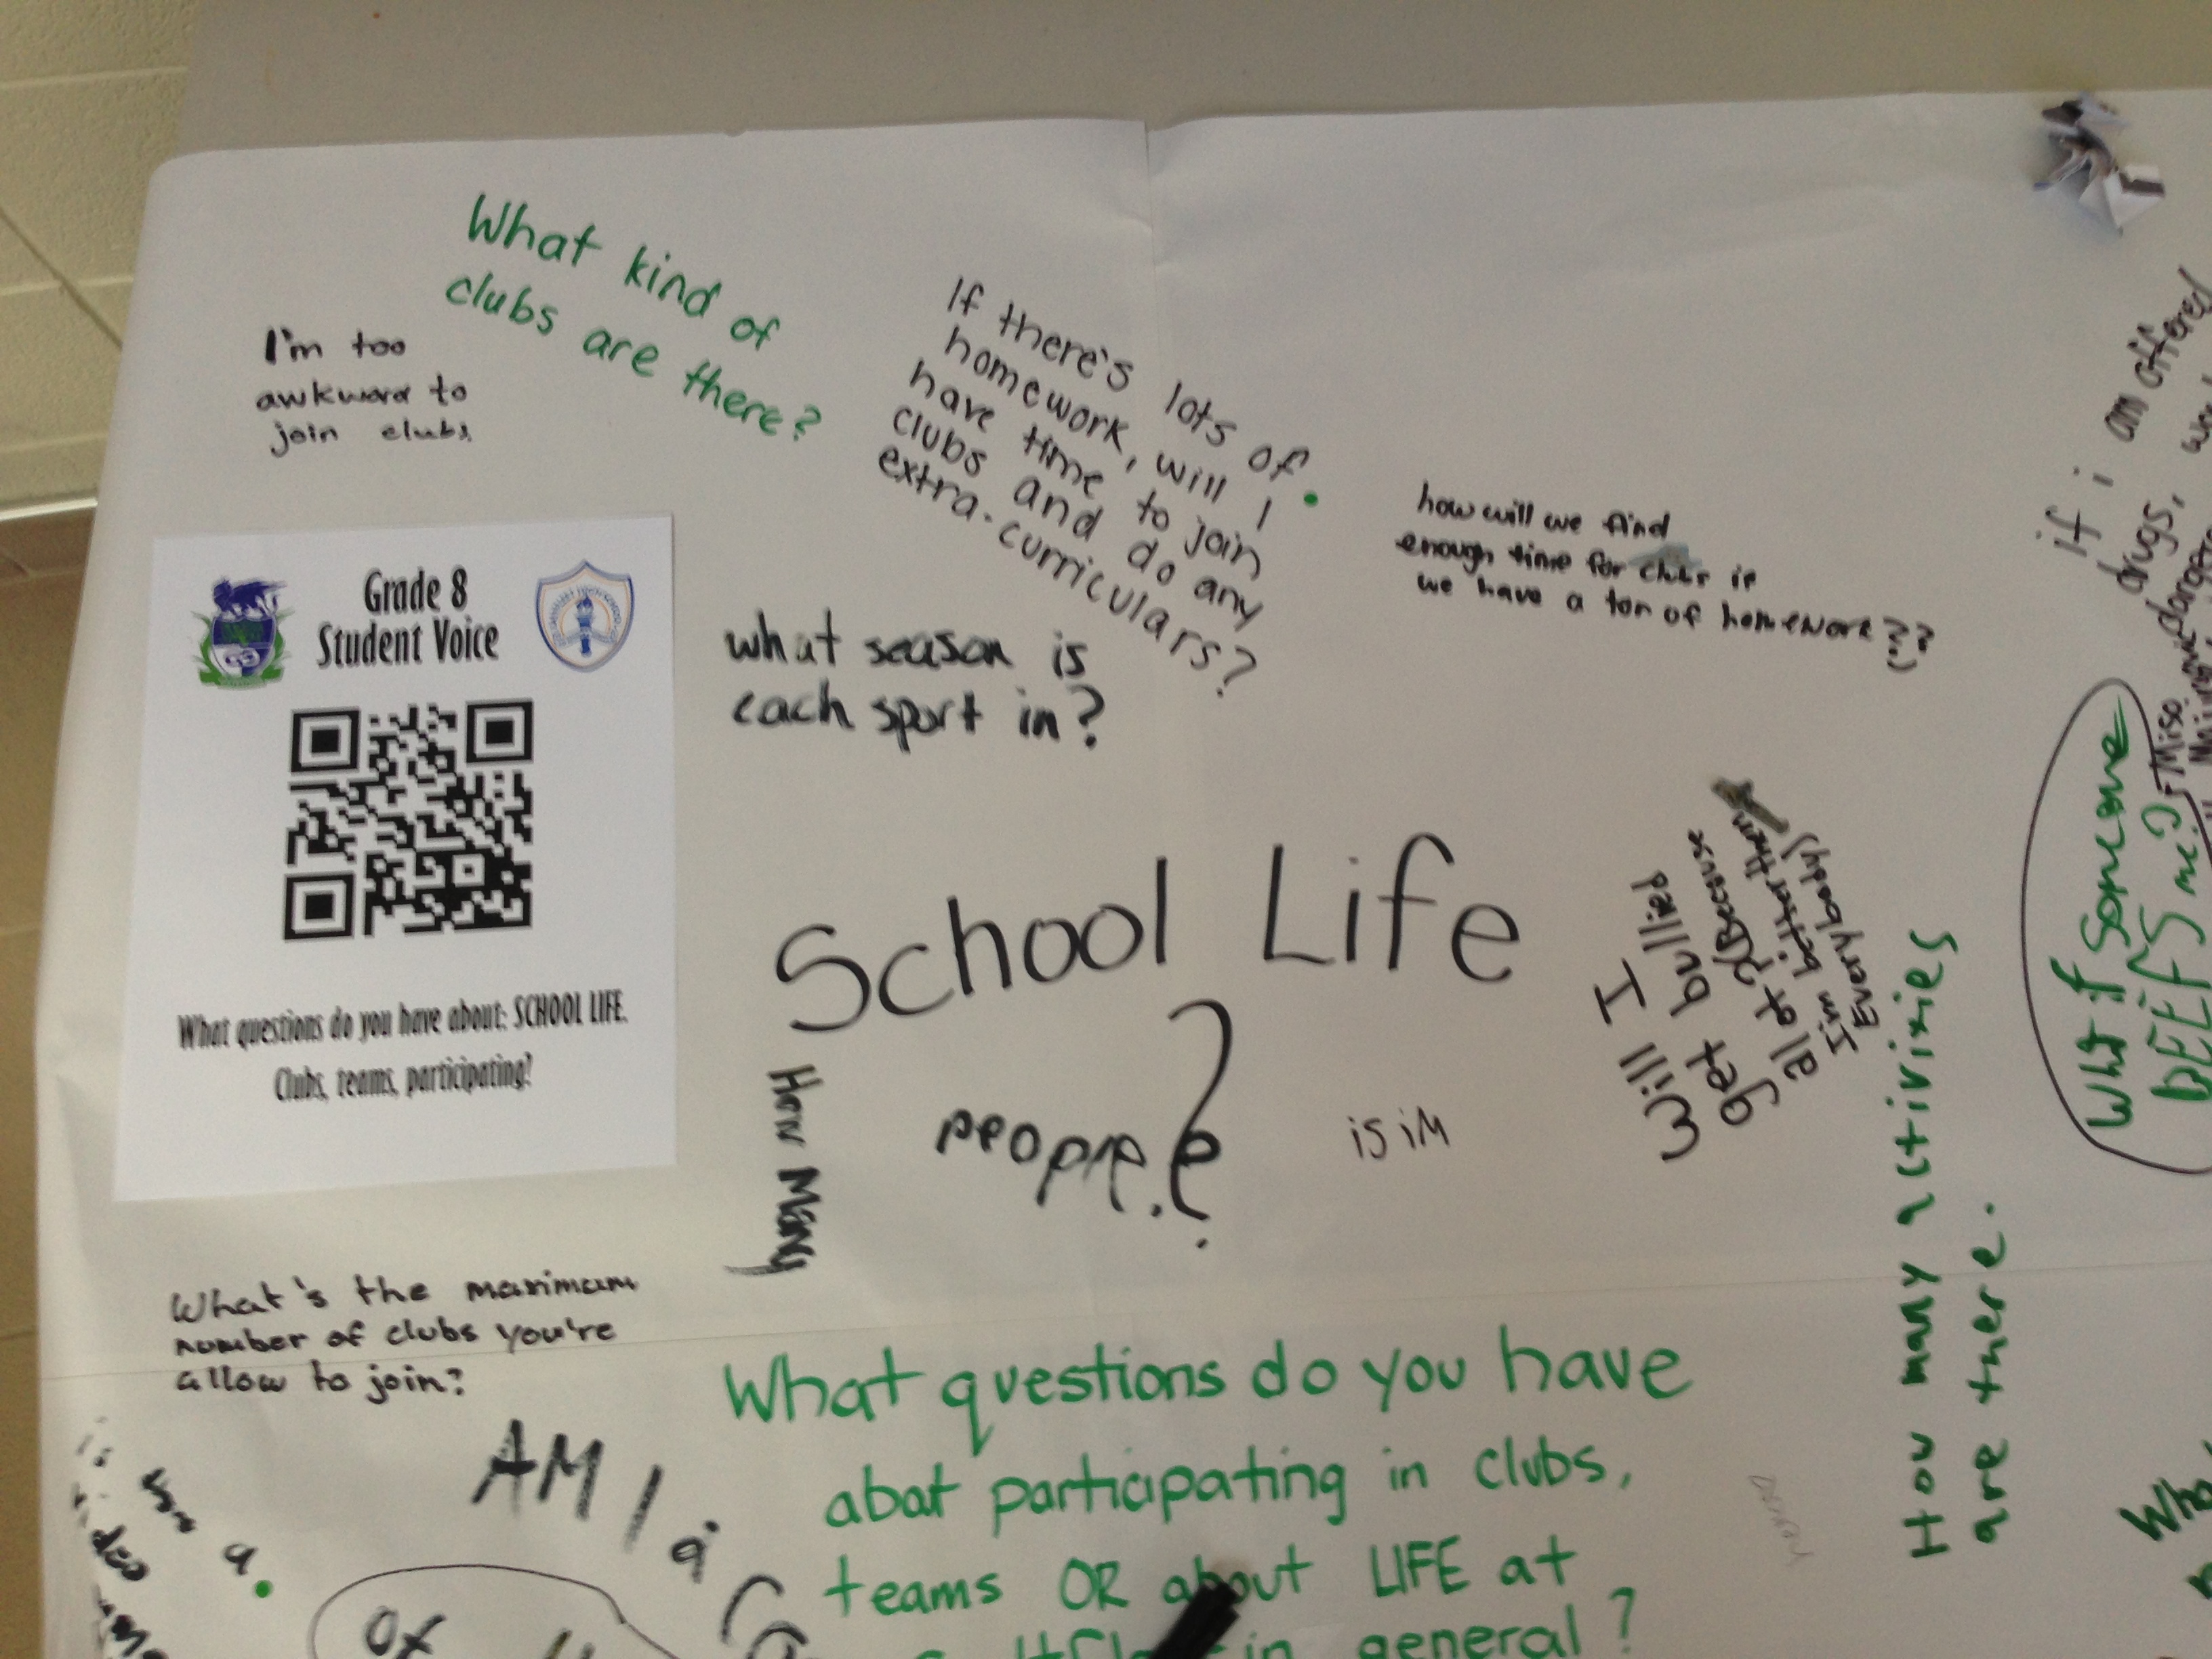 What kind of
clubs are there?
I'm too
awkward to
join clubs
If there's lots of
homework, will I
have time to join
clubs and do any
extra-curriculars?
how will we find
enough time for clubs if
we have a ton of homework??
if i am offered
drugs,
Grade 8
Student Voice
What questions do you have about: SCHOOL LIFE.
Clubs, teams, participating?
what season is
each sport in?
School Life
?
How Many
people.?
is iM
Will I
get bullied
alot?(Beccause
I'm better then
Everybody)
How many activities
are there.
What if someone
BEEFS me?
What's the maximum
number of clubs you're
allow to join?
AM I a
What questions do you have
abot participating in clubs,
teams OR about LIFE at
in general?
of